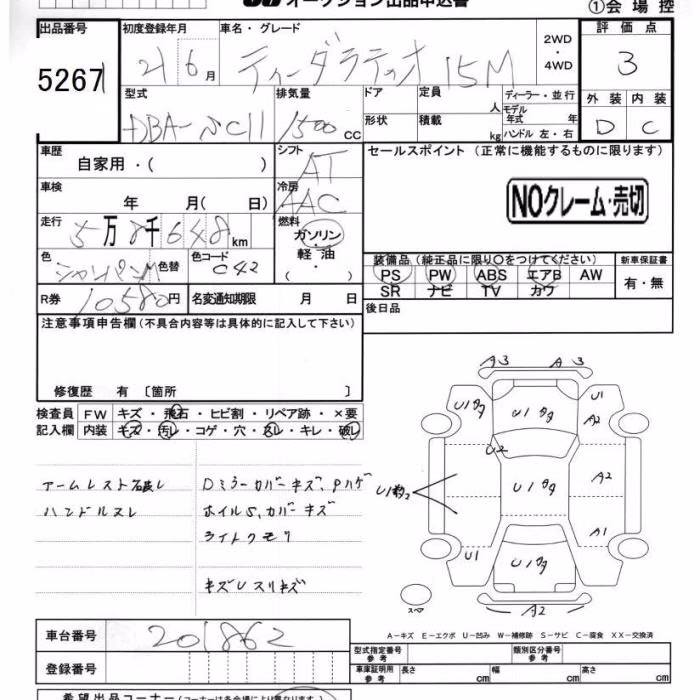 オークション出品申込書
①会場控
出品番号 初度登録年月 車名・グレード 2WD・4WD 評価点
5267 21 6月 ティーダラティオ 15M 3
型式 排気量 ドア 定員 人 ディーラー・並行 外装 内装
DBA-SC11 1500 CC 形状 積載 kg モデル年式 年 ハンドル 左・右 D C
車歴 シフト セールスポイント (正常に機能するものに限ります)
自家用・( ) AT
車検 冷房 NOクレーム・売切
年 月( 日) AAC
走行 燃料
5万8千648km ガソリン・軽油
( ・ )
色 色替 色コード 装備品 (純正品に限り○をつけてください) 新車保証書
シャンパンM C42 PS PW ABS エアB AW 有・無
R券 10580円 名変通知期限 月 日 SR ナビ TV カワ
注意事項申告欄 (不具合内容等は具体的に記入して下さい) 後日品
修復歴 有 〔箇所 〕
検査員 FW キズ・飛石・ヒビ割・リペア跡・×要
記入欄 内装 キズ・汚レ・コゲ・穴・スレ・キレ・破レ
アームレスト破レ Dミラーカバーキズ、Pハゲ
ハンドルスレ ホイルS、カバーキズ
ライトクモリ
キズUスリキズ
A3 A3
U1タタ U1タタ U1
A2
U2
U1 U1タタ A2
A1
U1 U1タタ
スペア A2
A-キズ E-エクボ U-凹み W-補修跡 S-サビ C-腐食 XX-交換済
車台番号 201862 型式指定番号 参考 類別区分番号 参考
登録番号 車庫証明用 参考 長さ cm 幅 cm 高さ cm
希望出品コーナー